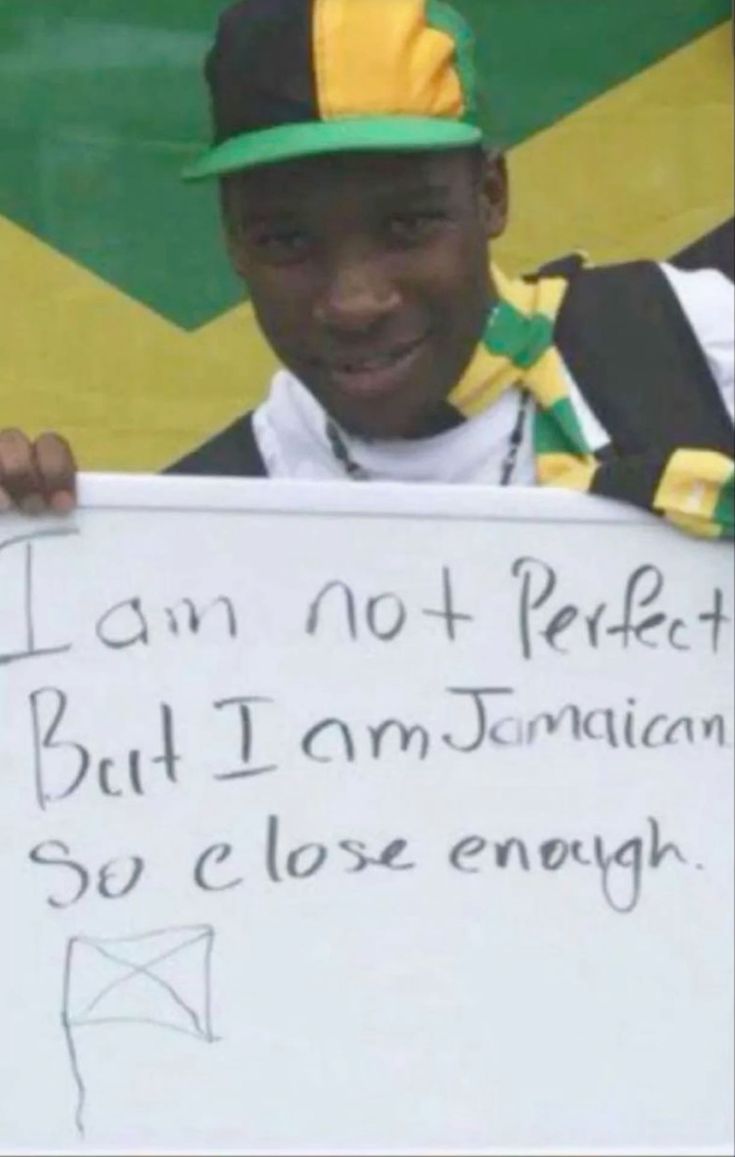 I am not Perfect
But I am Jamaican
So close enough.